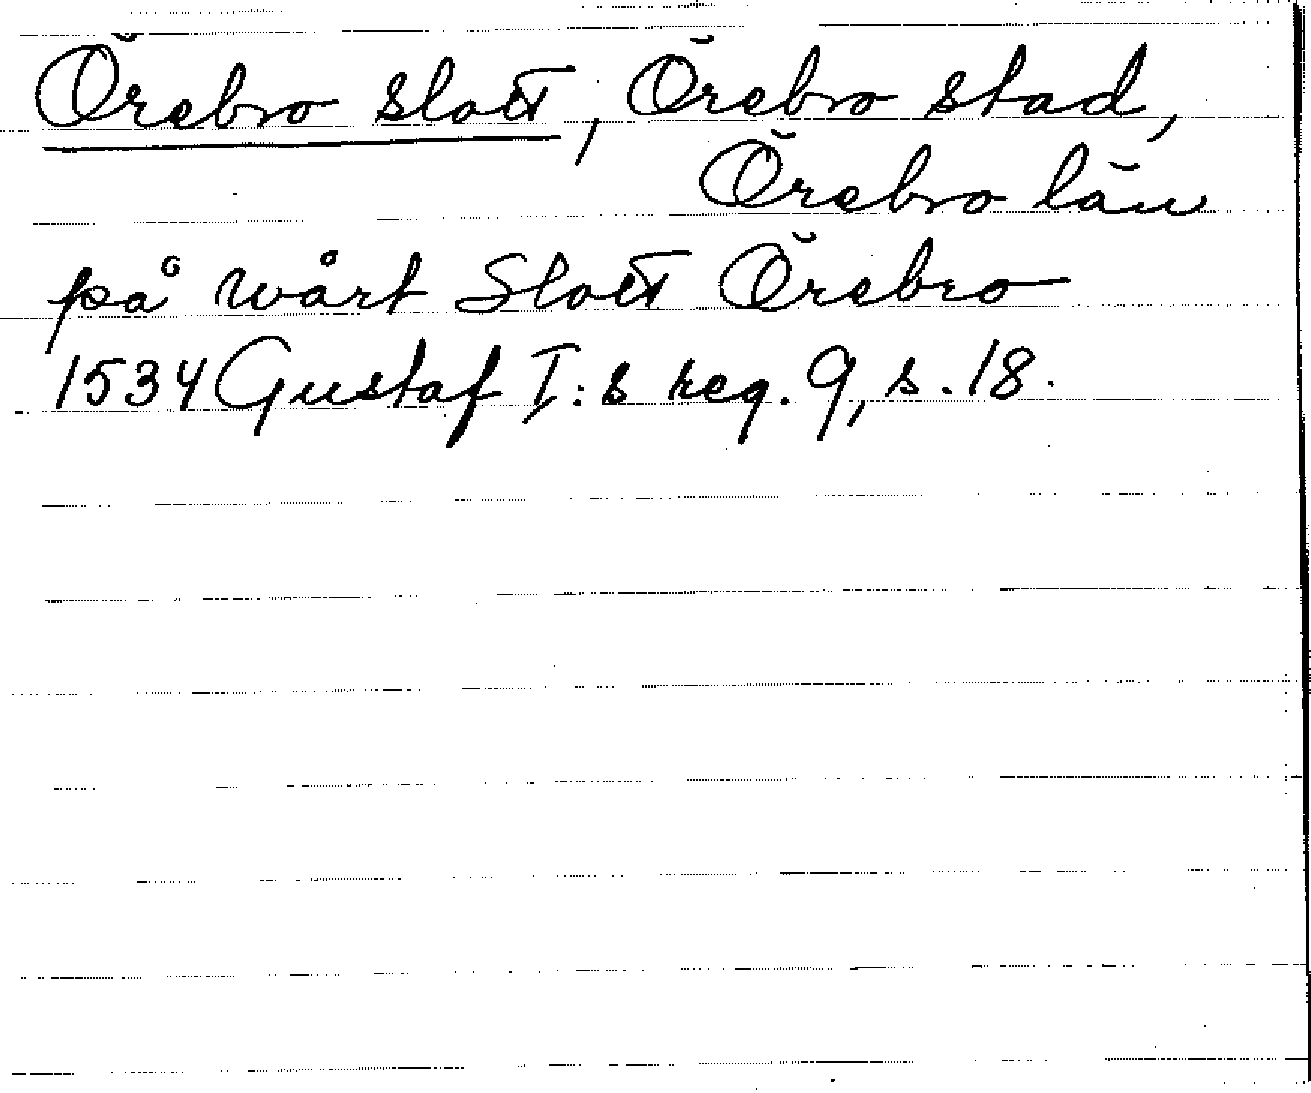 Örebro slott, Örebro stad,
Örebro län
på wårt Slott Örebro
1534 Gustaf I:s reg. 9, s. 18.